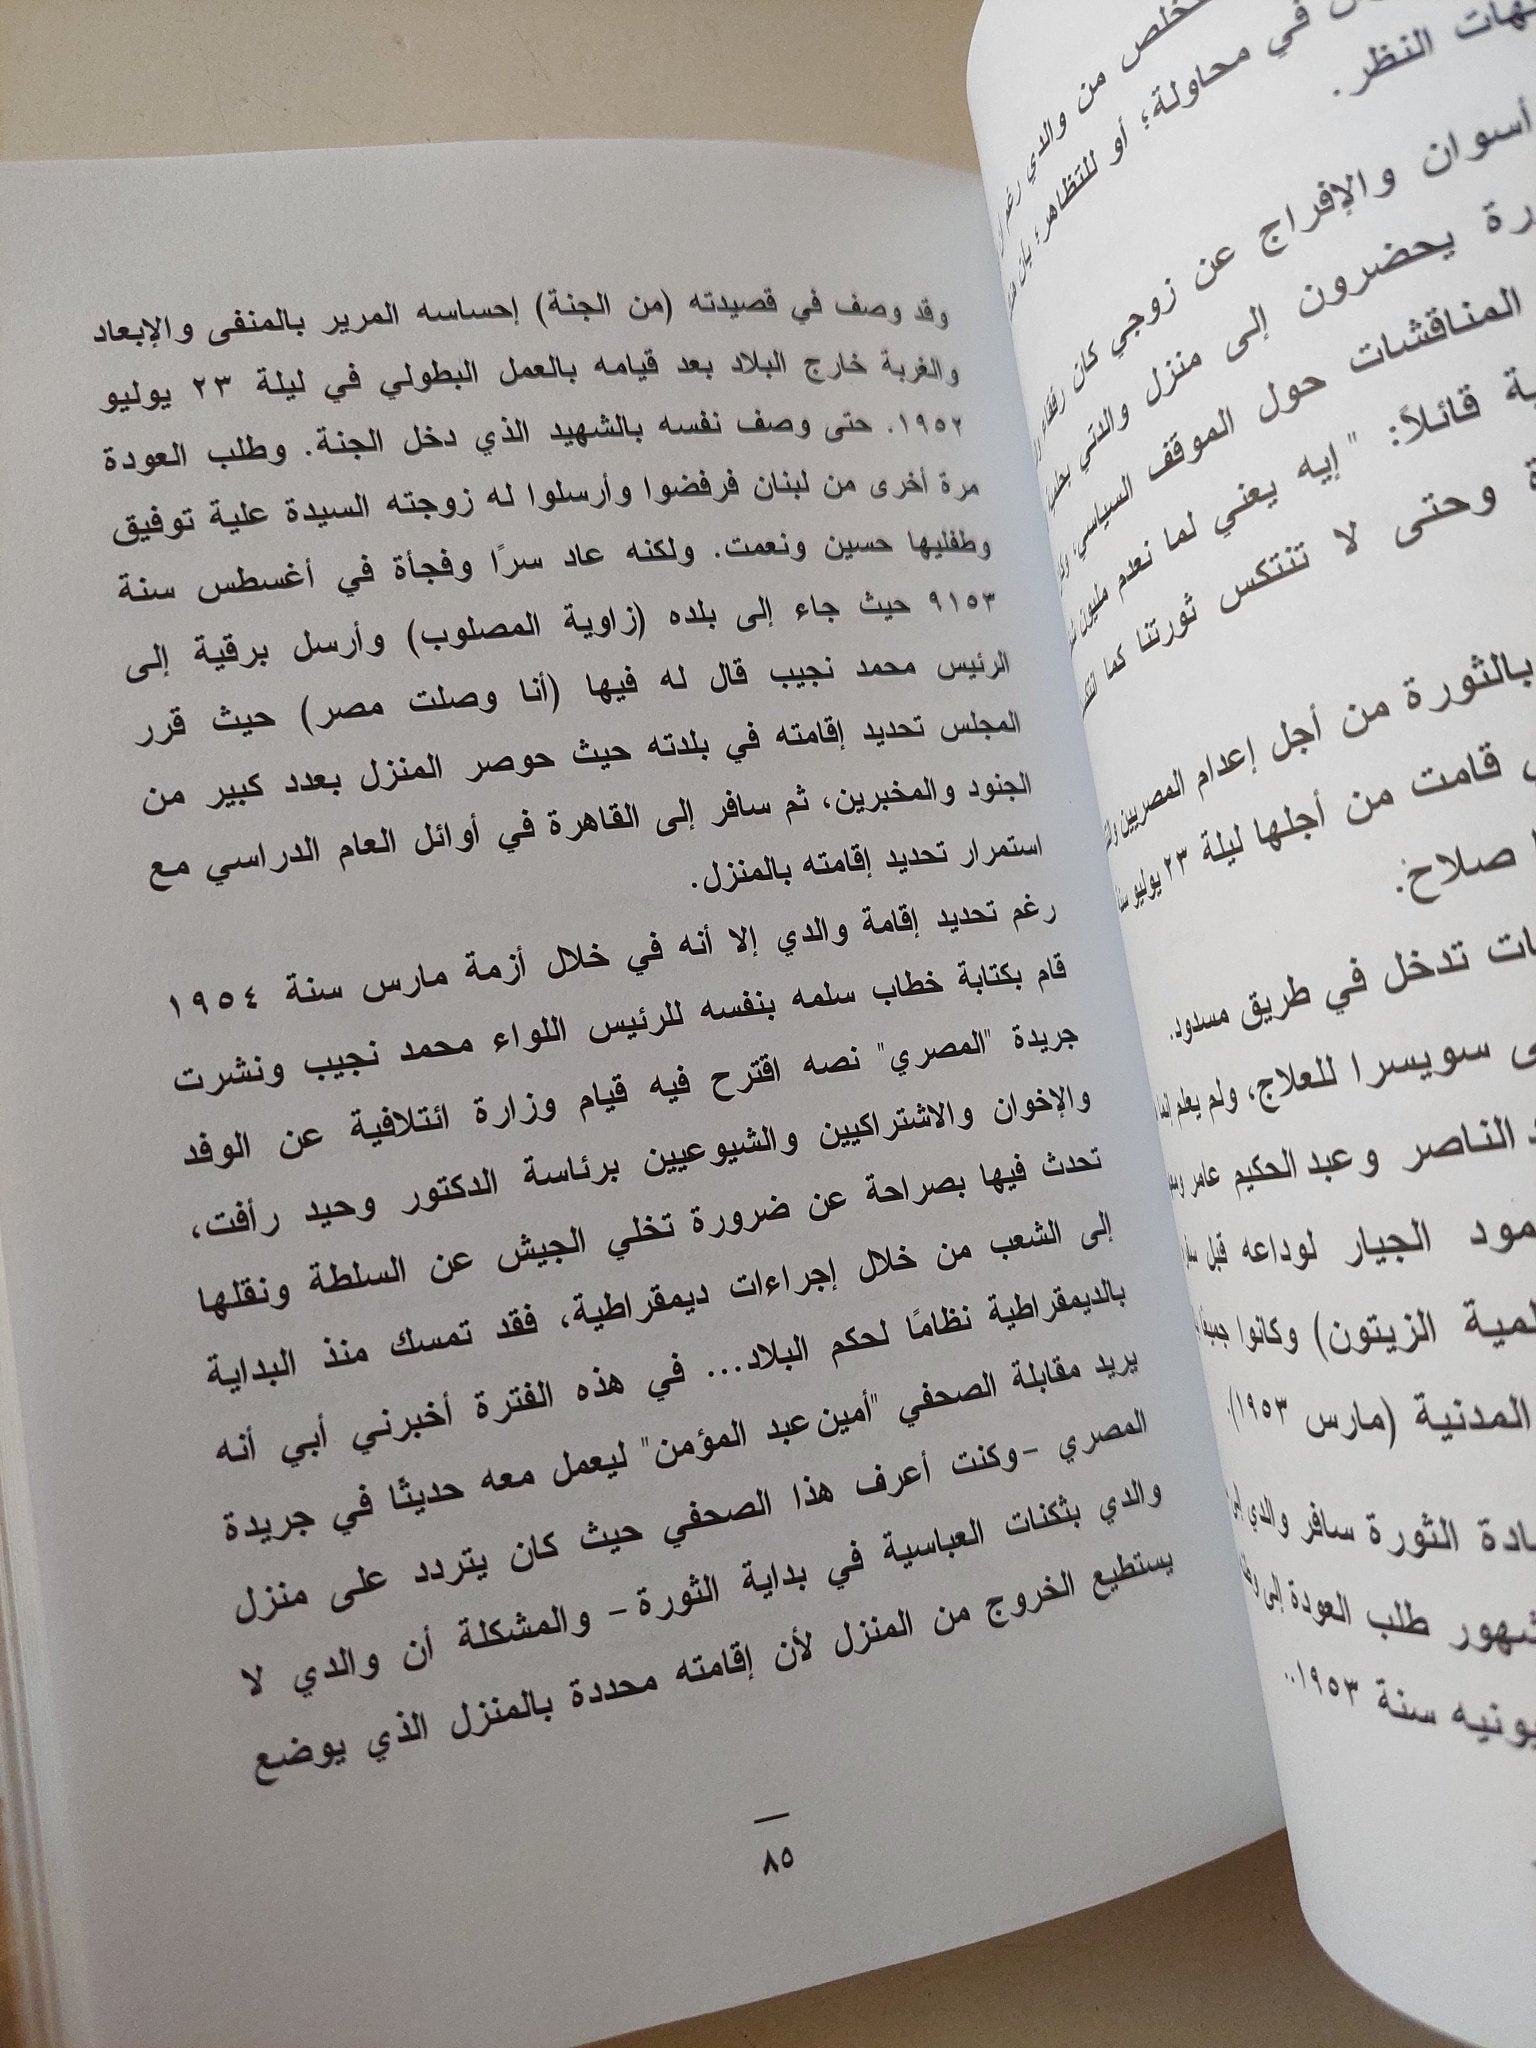 من والدي رغم
في محاولة؛ أو للتظاهر؛ بأن
النظر.
أسوان والإفراج عن زوجي كان رفقاء
يحضرون إلى منزل والدتي
المناقشات حول الموقف السياسي،
قائلاً: "إيه يعني لما نعدم مليون
وحتى لا تنتكس ثورتنا كما
بالثورة من أجل إعدام المصريين
قامت من أجلها ليلة ٢٣ يوليو
صلاح.
تدخل في طريق مسدود.
سويسرا للعلاج، ولم يعلم
الناصر وعبد الحكيم عامر
الجيار لوداعه قبل
الزيتون) وكانوا جميعًا
المدنية (مارس ١٩٥٣).
الثورة سافر والدي إلى
طلب العودة إلى
سنة ١٩٥٣..
وقد وصف في قصيدته (من الجنة) إحساسه المرير بالمنفى والإبعاد
والغربة خارج البلاد بعد قيامه بالعمل البطولي في ليلة ٢٣ يوليو
١٩٥٢. حتى وصف نفسه بالشهيد الذي دخل الجنة. وطلب العودة
مرة أخرى من لبنان فرفضوا وأرسلوا له زوجته السيدة علية توفيق
وطفليها حسين ونعمت. ولكنه عاد سرًا وفجأة في أغسطس سنة
٩١٥٣ حيث جاء إلى بلده (زاوية المصلوب) وأرسل برقية إلى
الرئيس محمد نجيب قال له فيها (أنا وصلت مصر) حيث قرر
المجلس تحديد إقامته في بلدته حيث حوصر المنزل بعدد كبير من
الجنود والمخبرين، ثم سافر إلى القاهرة في أوائل العام الدراسي مع
استمرار تحديد إقامته بالمنزل.
رغم تحديد إقامة والدي إلا أنه في خلال أزمة مارس سنة ١٩٥٤
قام بكتابة خطاب سلمه بنفسه للرئيس اللواء محمد نجيب ونشرت
جريدة "المصري" نصه اقترح فيه قيام وزارة ائتلافية عن الوفد
والإخوان والاشتراكيين والشيوعيين برئاسة الدكتور وحيد رأفت،
تحدث فيها بصراحة عن ضرورة تخلي الجيش عن السلطة ونقلها
إلى الشعب من خلال إجراءات ديمقراطية، فقد تمسك منذ البداية
بالديمقراطية نظامًا لحكم البلاد... في هذه الفترة أخبرني أبي أنه
يريد مقابلة الصحفي "أمين عبد المؤمن" ليعمل معه حديثًا في جريدة
المصري -وكنت أعرف هذا الصحفي حيث كان يتردد على منزل
والدي بثكنات العباسية في بداية الثورة- والمشكلة أن والدي لا
يستطيع الخروج من المنزل لأن إقامته محددة بالمنزل الذي يوضع
٨٥